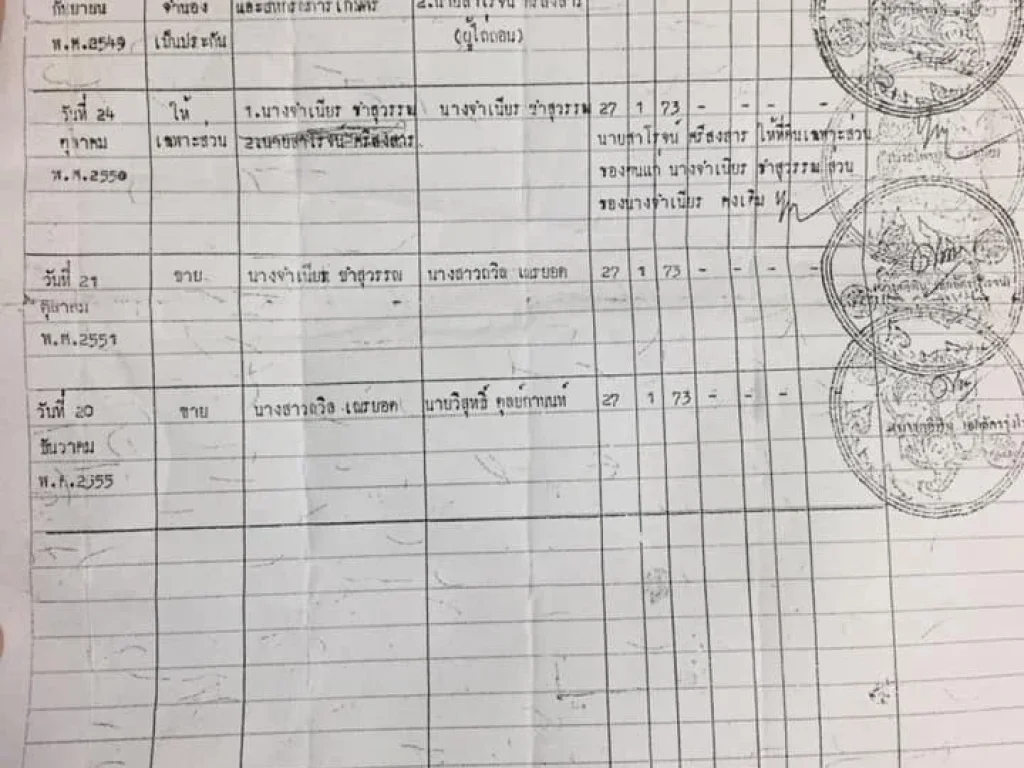 กันยายน จำนอง และสหกรณ์การเกษตร 2.นายสาโรจน์ ศรีสงสาร
พ.ศ.2549 เป็นประกัน (ผู้ไถ่ถอน)
วันที่ 24 ให้ 1.นางจำเนียร ขำสุวรรณ นางจำเนียร ขำสุวรรณ 27 1 73 - - - -
ตุลาคม เฉพาะส่วน 2.นายสาโรจน์ ศรีสงสาร. นายสาโรจน์ ศรีสงสาร ให้ที่ดินเฉพาะส่วน
พ.ศ.2550 ของตนแก่ นางจำเนียร ขำสุวรรณ ส่วน
ของนางจำเนียร คงเดิม
วันที่ 21 ขาย นางจำเนียร ขำสุวรรณ นางสาวถวิล เณรยอด 27 1 73 - - - -
ตุลาคม - -
พ.ศ.2551
วันที่ 20 ขาย นางสาวถวิล เณรยอด นายวิสุทธิ์ 27 1 73 - - -
ธันวาคม
พ.ศ.2555